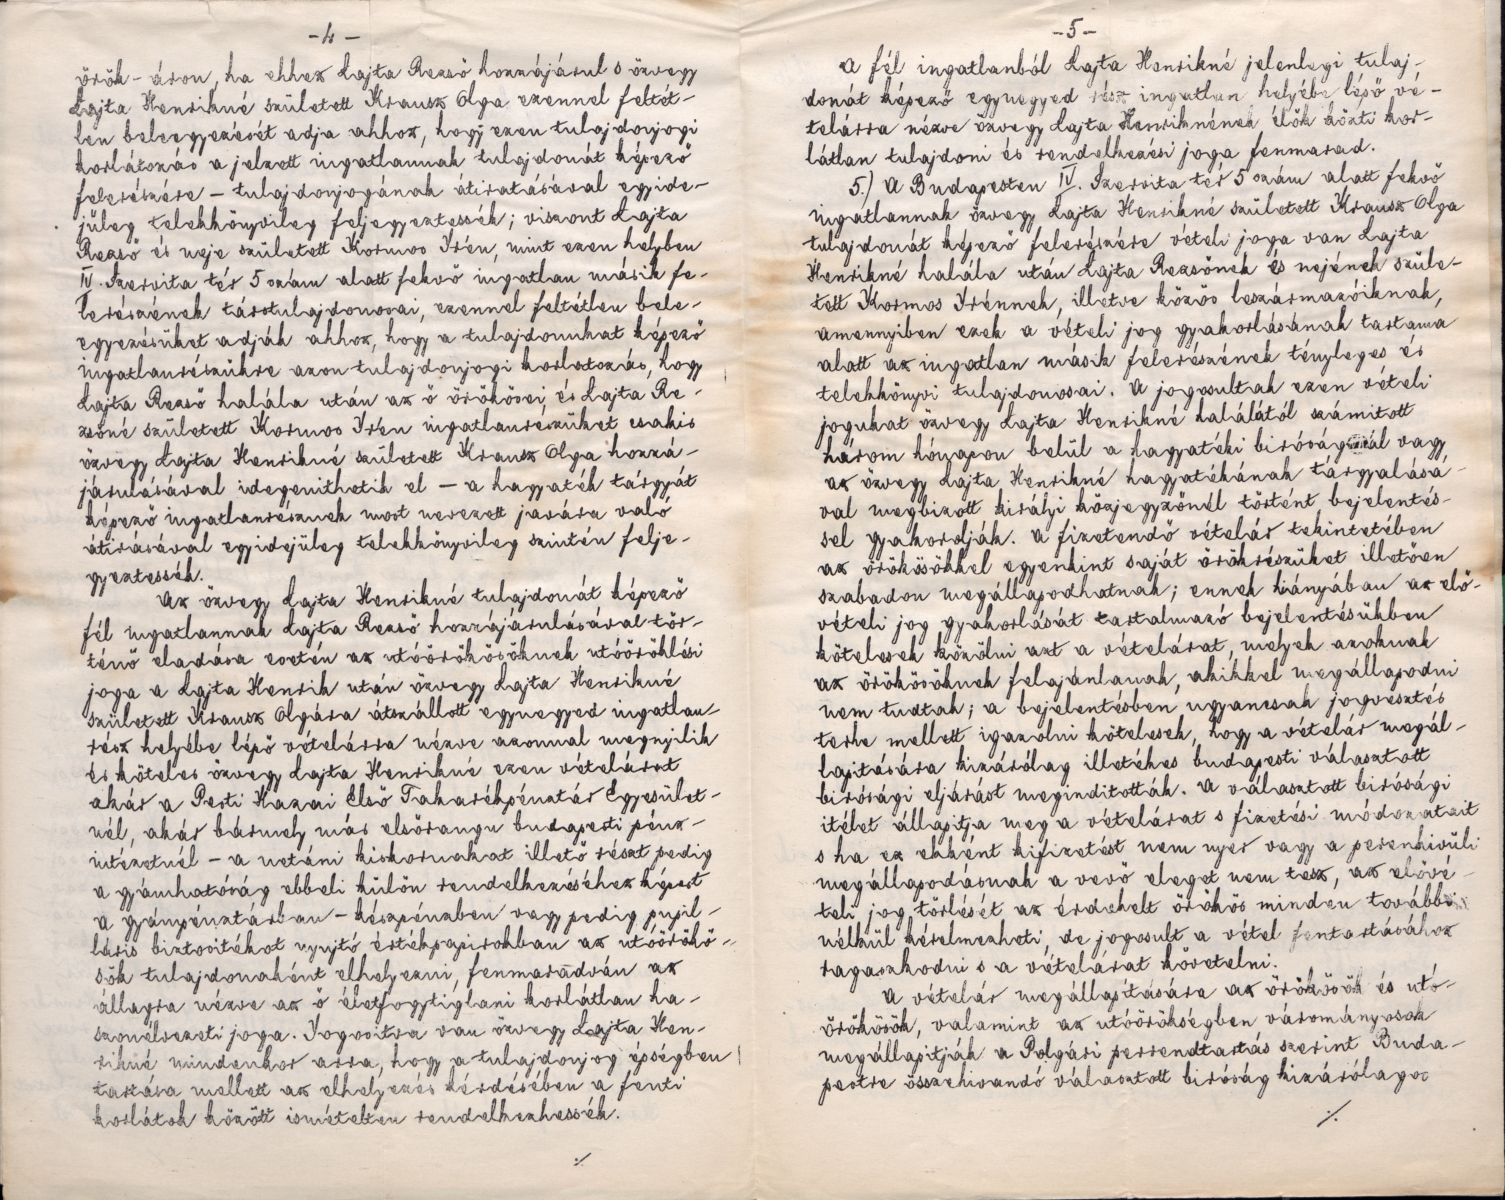 -4-
örök-áron, ha ehhez Lajta Rezső hozzájárul s özvegy
Lajta Henrikné született Krausz Olga ezennel feltét-
len beleegyezését adja ahhoz, hogy ezen tulajdonjogi
korlátozás a jelzett ingatlannak tulajdonát képező
felerészére – tulajdonjogának átiratásával egyide-
jüleg telekkönyvileg feljegyeztessék; viszont Lajta
Rezső és neje született Kormos Irén, mint ezen helyben
IV. Szervita tér 5 szám alatt fekvő ingatlan másik fe-
lerészének társtulajdonosai, ezennel feltétlen bele-
egyezésüket adják ahhoz, hogy a tulajdonukat képező
ingatlanrészükre azon tulajdonjogi korlátozás, hogy
Lajta Rezső halála után az ő örökösei, és Lajta Re-
zsőné született Kormos Irén ingatlanrészüket csakis
özvegy Lajta Henrikné született Krausz Olga hozzá-
járulásával idegenithetik el – a hagyaték tárgyát
képező ingatlanrésznek most nevezett javára való
átirásával egyidejüleg telekkönyvileg szintén felje-
gyeztessék.
Az özvegy Lajta Henrikné tulajdonát képező
fél ingatlannak Lajta Rezső hozzájárulásával tör-
ténő eladása esetén az utóörökösöknek utóöröklési
joga a Lajta Henrik után özvegy Lajta Henrikné
született Krausz Olgára átszállott egynegyed ingatlan-
rész helyébe lépő vételárra nézve azonnal megnyilik
és köteles özvegy Lajta Henrikné ezen vételárat
akár a Pesti Hazai Első Takarékpénztár Egyesület-
nél, akár bármely más elsőrangu budapesti pénz-
intézetnél – a netáni kiskoruakat illető részt pedig
a gyámhatóság ebbeli külön rendelkezéséhez képest
a gyámpénztárban – készpénzben vagy pedig pupil-
láris biztositékot nyujtó értékpapirokban az utóörökö-
sök tulajdonaként elhelyezni, fenmaradván az
állagra nézve az ő életfogytiglani korlátlan ha-
szonélvezeti joga. Jogositva van özvegy Lajta Hen-
rikné mindenkor arra, hogy a tulajdonjog épségben
tartása mellett az elhelyezés kérdésében a fenti
korlátok között ismételten rendelkezhessék.
./.
-5-
A fél ingatlanból Lajta Henrikné jelenlegi tulaj-
donát képező egynegyed rész ingatlan helyébe lépő vé-
telárra nézve özvegy Lajta Henriknének élők közti kor-
látlan tulajdoni és rendelkezési joga fenmarad.
5.) A Budapesten IV. Szervita tér 5 szám alatt fekvő
ingatlannak özvegy Lajta Henrikné született Krausz Olga
tulajdonát képező felerészére vételi joga van Lajta
Henrikné halála után Lajta Rezsőnek és nejének szüle-
tett Kormos Irénnek, illetve közös leszármazóiknak,
amennyiben ezek a vételi jog gyakorlásának tartama
alatt az ingatlan másik felerészének tényleges és
telekkönyvi tulajdonosai. A jogosultak ezen vételi
jogukat özvegy Lajta Henrikné halálától számitott
három hónapon belül a hagyatéki biróságnál vagy
az özvegy Lajta Henrikné hagyatékának tárgyalásá-
val megbizott királyi közjegyzőnél történt bejelentés-
sel gyakorolják. A fizetendő vételár tekintetében
az örökösökkel egyenkint saját örökrészüket illetően
szabadon megállapodhatnak; ennek hiányában az elő-
vételi jog gyakorlását tartalmazó bejelentésükben
kötelesek közölni azt a vételárat, melyek azoknak
az örökösöknek felajánlanak, akikkel megállapodni
nem tudtak; a bejelentésben ugyancsak jogvesztés
terhe mellett igazolni kötelesek, hogy a vételár megál-
lapitására kizárólag illetékes budapesti választott
birósági eljárást meginditották. A választott birósági
itélet állapitja meg a vételárat s fizetési módozatait
s ha ez ekként kifizetést nem nyer vagy a perenkivüli
megállapodásnak a vevő eleget nem tesz, az elővé-
teli jog törlését az érdekelt örökös minden további
nélkül kérelmezheti, de jogosult a vétel fentartásához
ragaszkodni s a vételárat követelni.
A vételár megállapitására az örökösök és utó-
örökösök, valamint az utóörökségben várományosok
megállapitják a Polgári perrendtartás szerint Buda-
pestre összehivandó választott biróság kizárólagos
./.